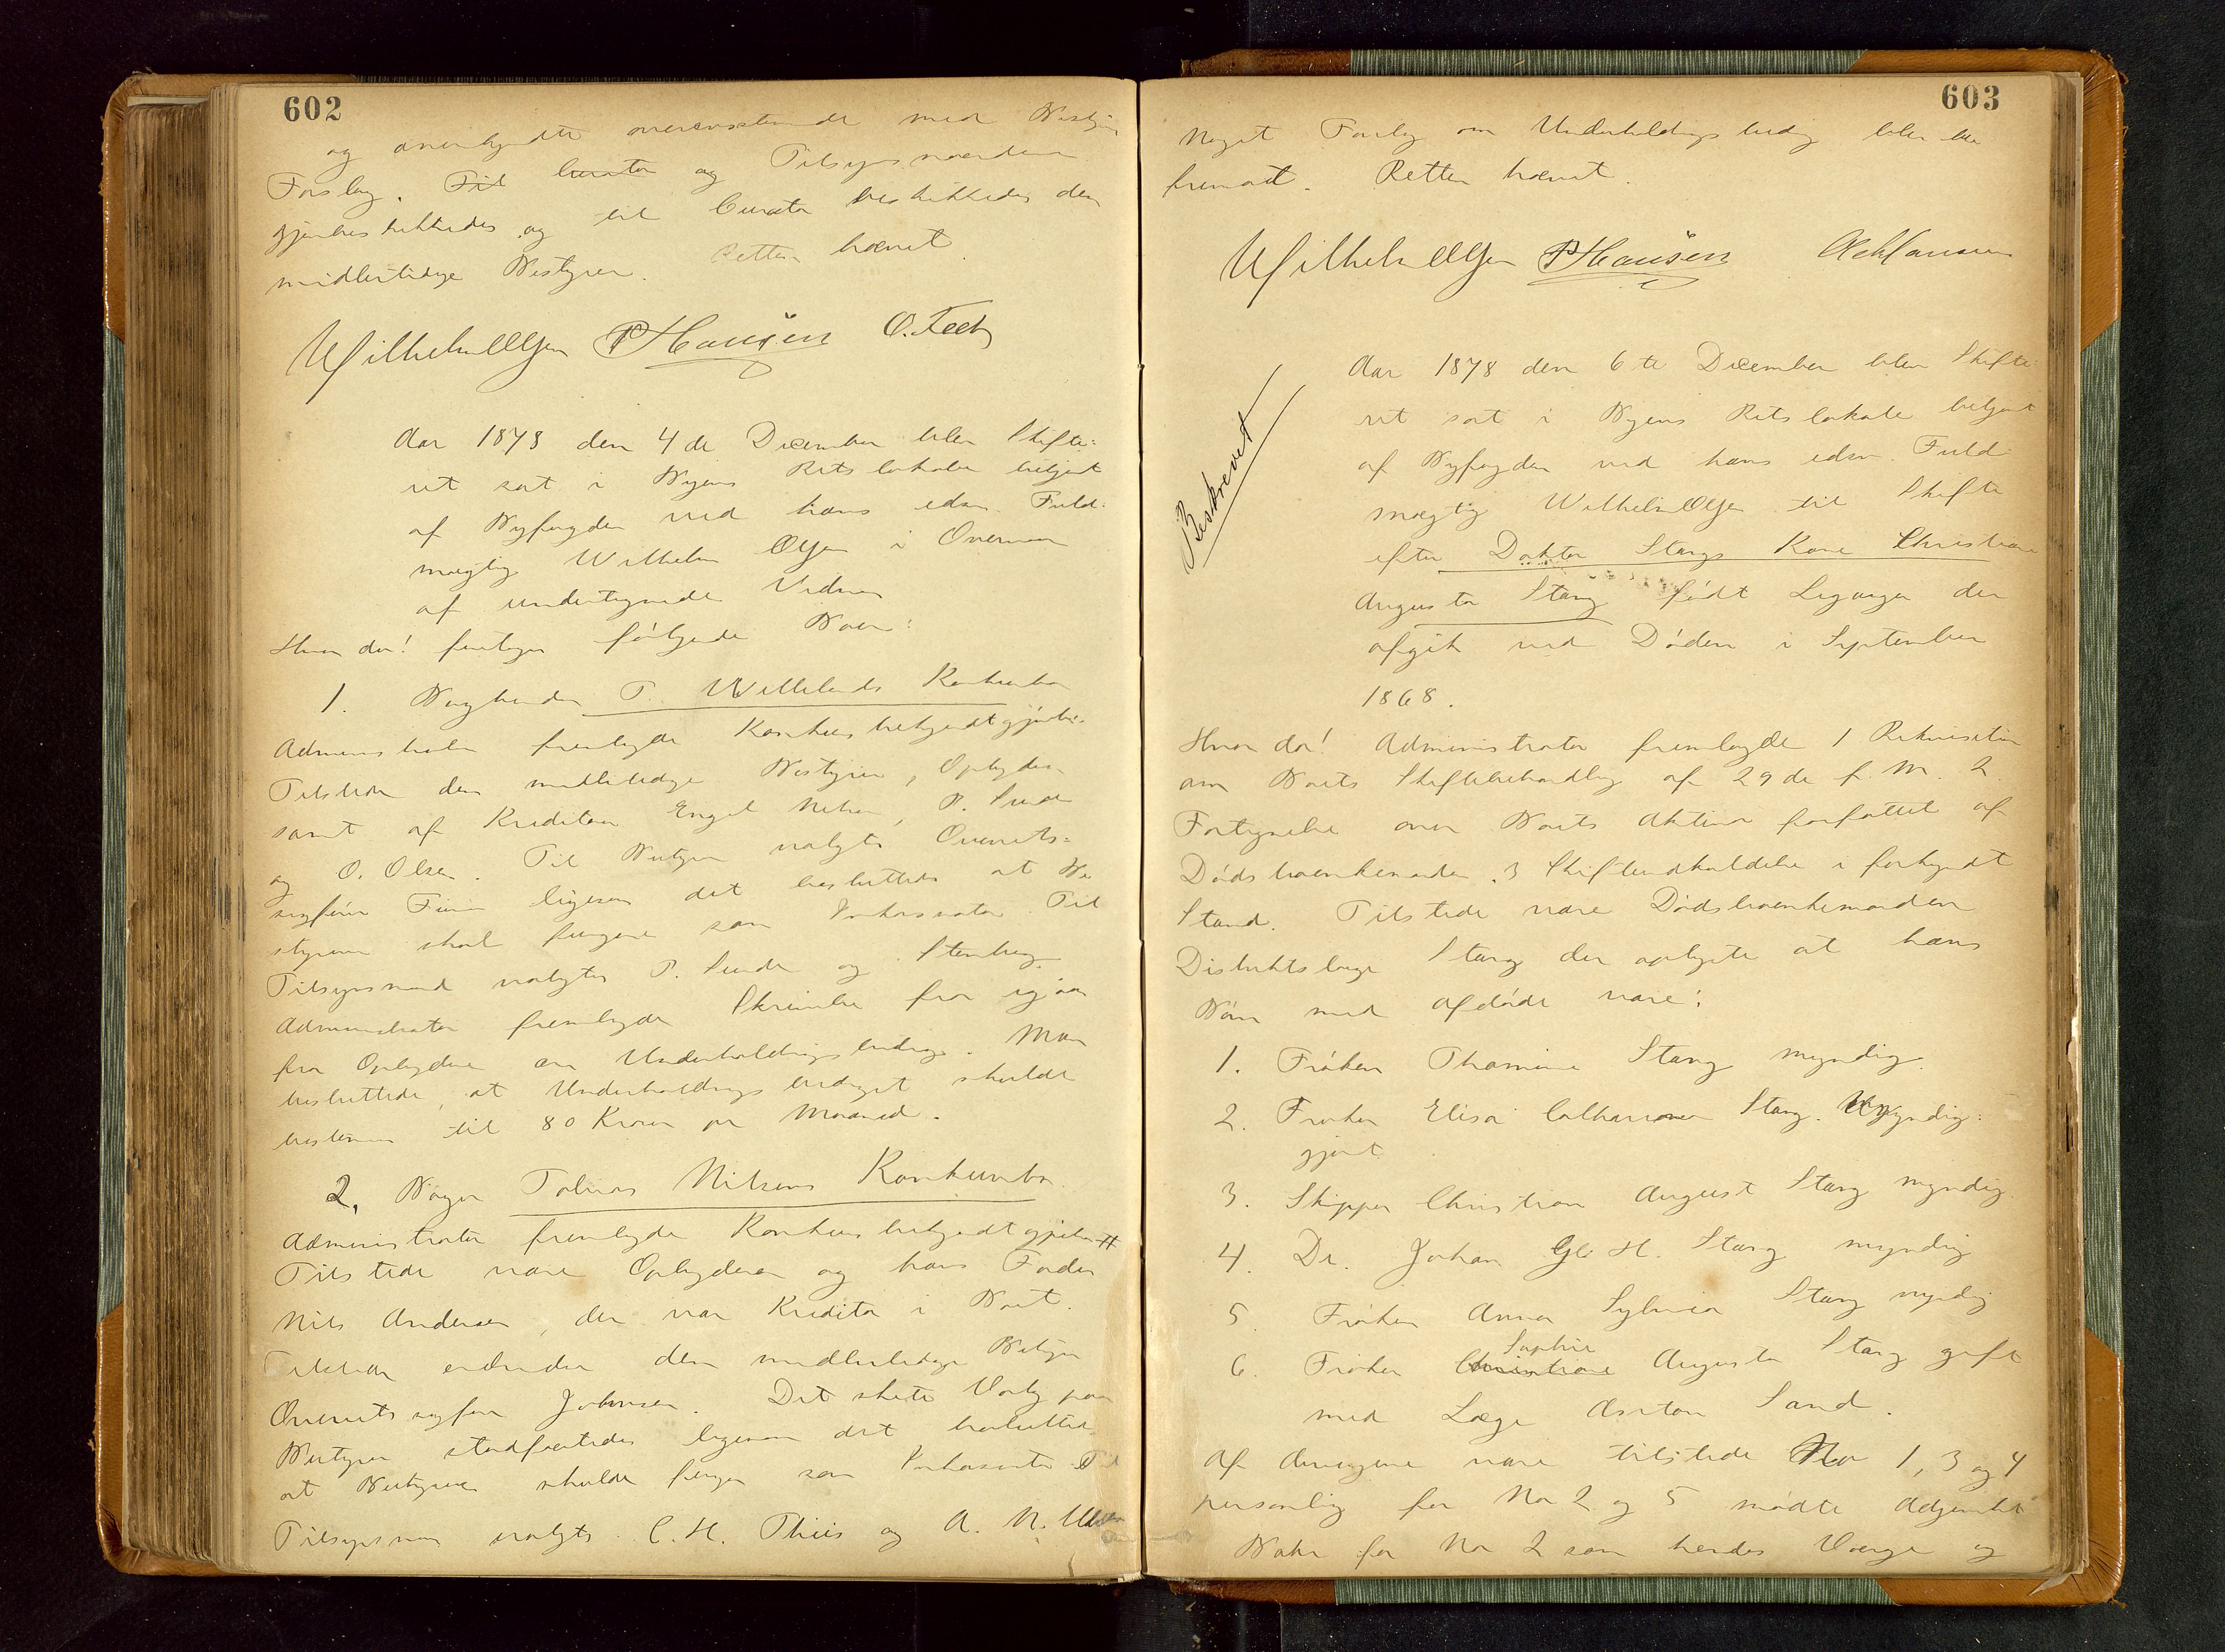 602
og overensstemende med Bestyr
Forslag. Til Curator og Tilsynsmændene
gjenbeskikkedes og til Curator beskikkedes den
midlertidige Bestyrer. Retten hævet.
Wilhelm Olsen PHansen O. Fech
Aar 1878 den 4de December blev Skifte:
ret sat i Byens Retslokale betjent
af Byfogden ved hans edsv. Fuld:
mægtig Wilhelm Olsen i Overvær
af undertegnede Vidner
Hvor da! foretoges følgende Boer:
1. T. Willelands Konkursbo
Administrator fremlagde Konkursbekjendtgjørelse.
Tilstede den midlertidige Bestyrer, Opbyderen
samt af Kreditorer Engel Nilsen, P. Sunde
og O. Olsen. Til Bestyrer valgtes Overrets=
sagfører ligesom det besluttedes at Be
styreren skal fungere som Inkassator. Til
Tilsynsmænd valgtes P. Sunde og Stenberg.
Administrator fremlagde Skrivelse fra igaar
fra Opbyderen om Underholdningsbidrag. Man
besluttede, at Underholdningsbidraget skulde
bestemmes til 80 Kroner pr Maaned.
2. Bager Tobias Nilsens Konkursbo.
Administrator fremlagde Konkursbekjendtgjørelse
Tilstede vare Opbyderen og hans Fader
Nils Andersen, der var Kreditor i Boet.
Tilstede endvidere den midlertidige Bestyrer
Overretssagfører Johnsen. Det skete Valg paa
Bestyrer stadfæstedes ligesom det besluttedes
at Bestyreren skulde fungere som Inkassator. Til
Tilsynsmænd valgtes C. H. Thiis og A. N.
603
Noget Forslag om Underholdningsbidrag blev ikke
fremsat. Retten hævet.
Wilhelm Olsen PHansen
Beskrevet
Aar 1878 den 6te December blev Skifte:
ret sat i Byens Retslokale betjent
af Byfogden ved hans edsv. Fuld:
mægtig Wilhelm Olsen til Skifte
efter Doktor Stangs Kone Christiane
Augusta Stang født Leganger der
afgik ved Døden i September
1868.
Hvor da! Administrator fremlagde 1 Rekvisition
om Boets Skiftebehandling af 29de f. M. 2
Fortegnelse over Boets Aktiva forfattet af
Dødsboenkemanden. 3 Skifteindkaldelse i forkyndt
Stand. Tilstede vare Dødsboenkemanden
Distriktslæge Stang der oplyste at hans
Børn med afdøde vare:
1. Frøken Thomine Stang myndig.
2. Frøken Elisa Catharina Stang. Umyndig:
gjort
3. Skipper Christian August Stang myndig.
4. Dr. Johan H. Stang myndig
5. Frøken Anna Sylvia Stang myndig
6. Frøken Christiane Sophie Augusta Stang gift
med Læge Sand.
Af Arvingerne vare tilstede No 1, 3 og 4
personlig for No 2 og 5 mødte Adjunkt
for No 2 som hendes Værge og